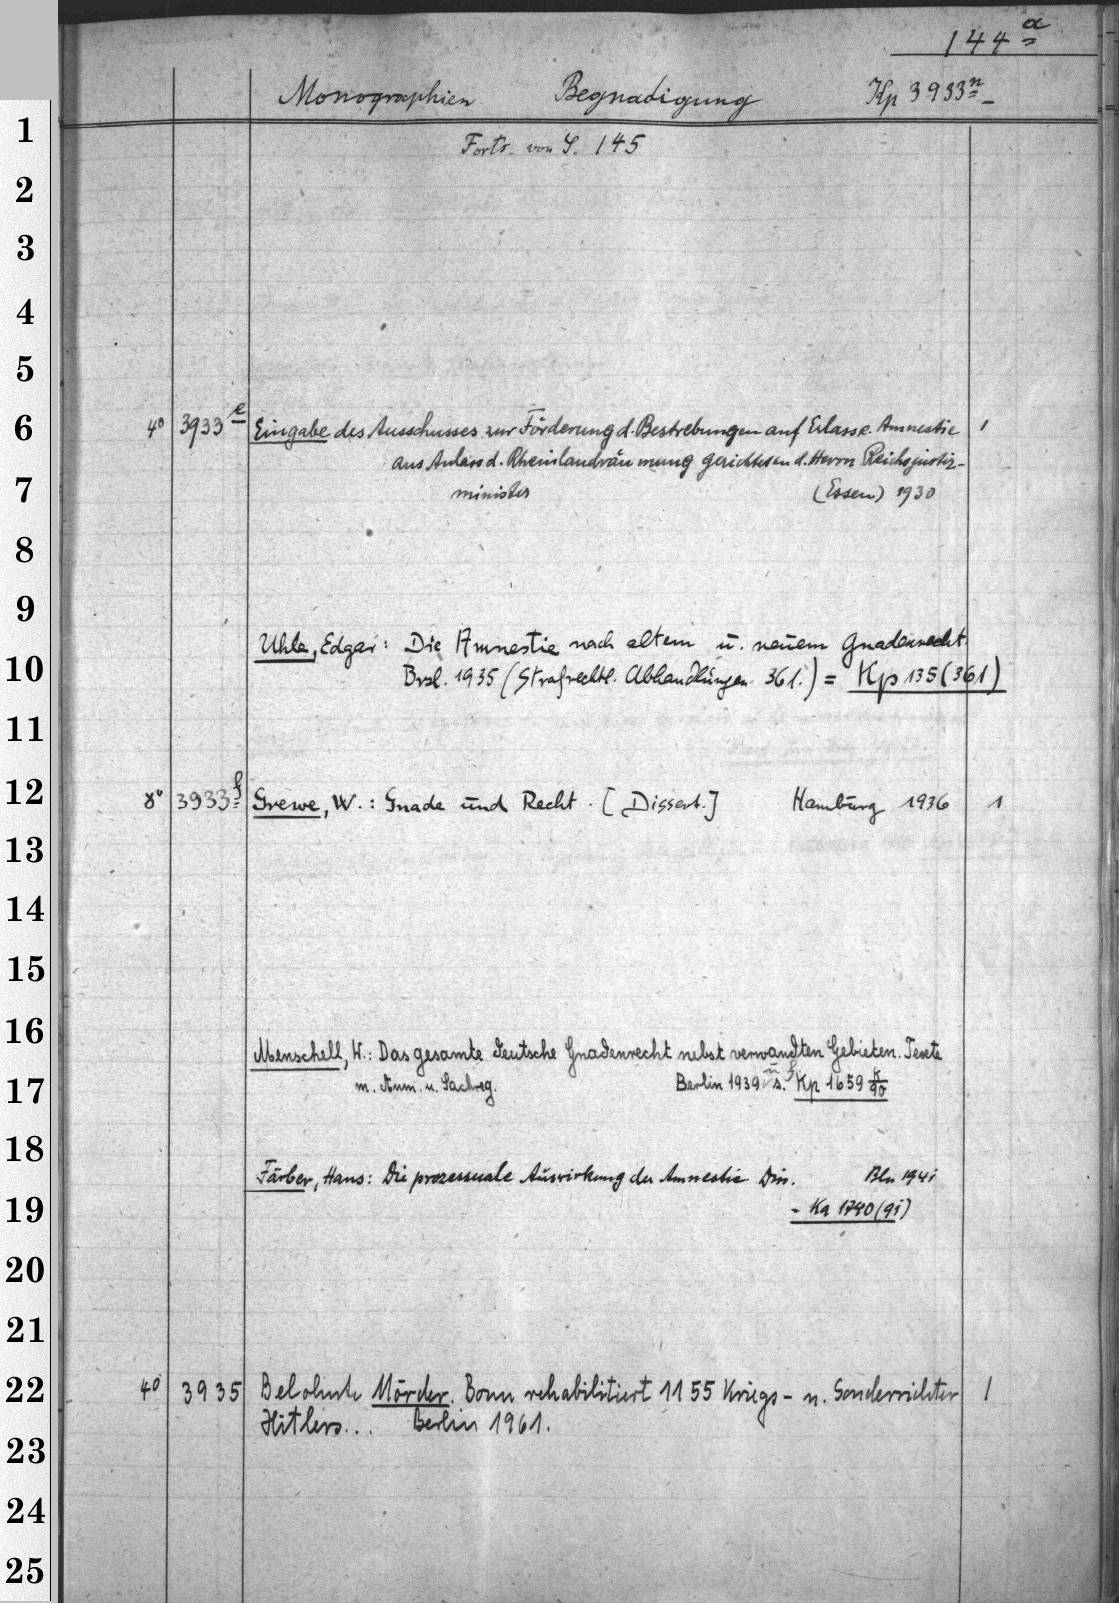 144a
Monographien Begnadigung Kp 3933n
Forts. von S. 145
1
2
3
4
5
6
7
8
9
10
11
12
13
14
15
16
17
18
19
20
21
22
23
24
25
4° 3933e Eingabe des Ausschusses zur Förderung d. Bestrebungen auf Erlass e. Amnestie 1
aus Anlass d. Rheinlandräumung gerichtet an d. Herrn Reichsjustiz-
minister (Essen) 1930
Uhle, Edgar: Die Amnestie nach altem u. neuem Gnadenrecht
Brsl. 1935 (Strafrechtl. Abhandlungen 361.) = Kp 135(361)
8° 3933f Grewe, W.: Gnade und Recht. [Dissert.] Hamburg 1936 1
Menschell, W.: Das gesamte deutsche Gnadenrecht nebst verwandten Gebieten. Texte
m. Anm. u. Sachreg. Berlin 1939 s. Kp 1659 k/90
Färber, Hans: Die prozessuale Auswirkung der Amnestie Diss. Bln 1941
= Ka 1740(91)
4° 3935 Belohnte Mörder. Bonn rehabilitiert 1155 Kriegs- u. Sonderrichter 1
Hitlers... Berlin 1961.